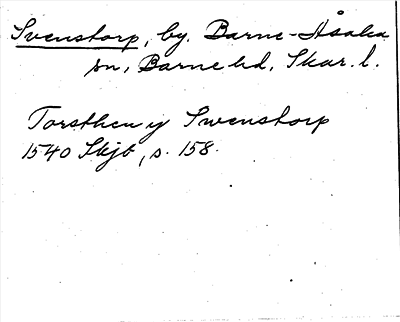 Svenstorp, by. Barne-Åsaka
sn, Barne hd, Skar. l.
Torsthen y Swenstorp
1540 Skjb, s. 158.